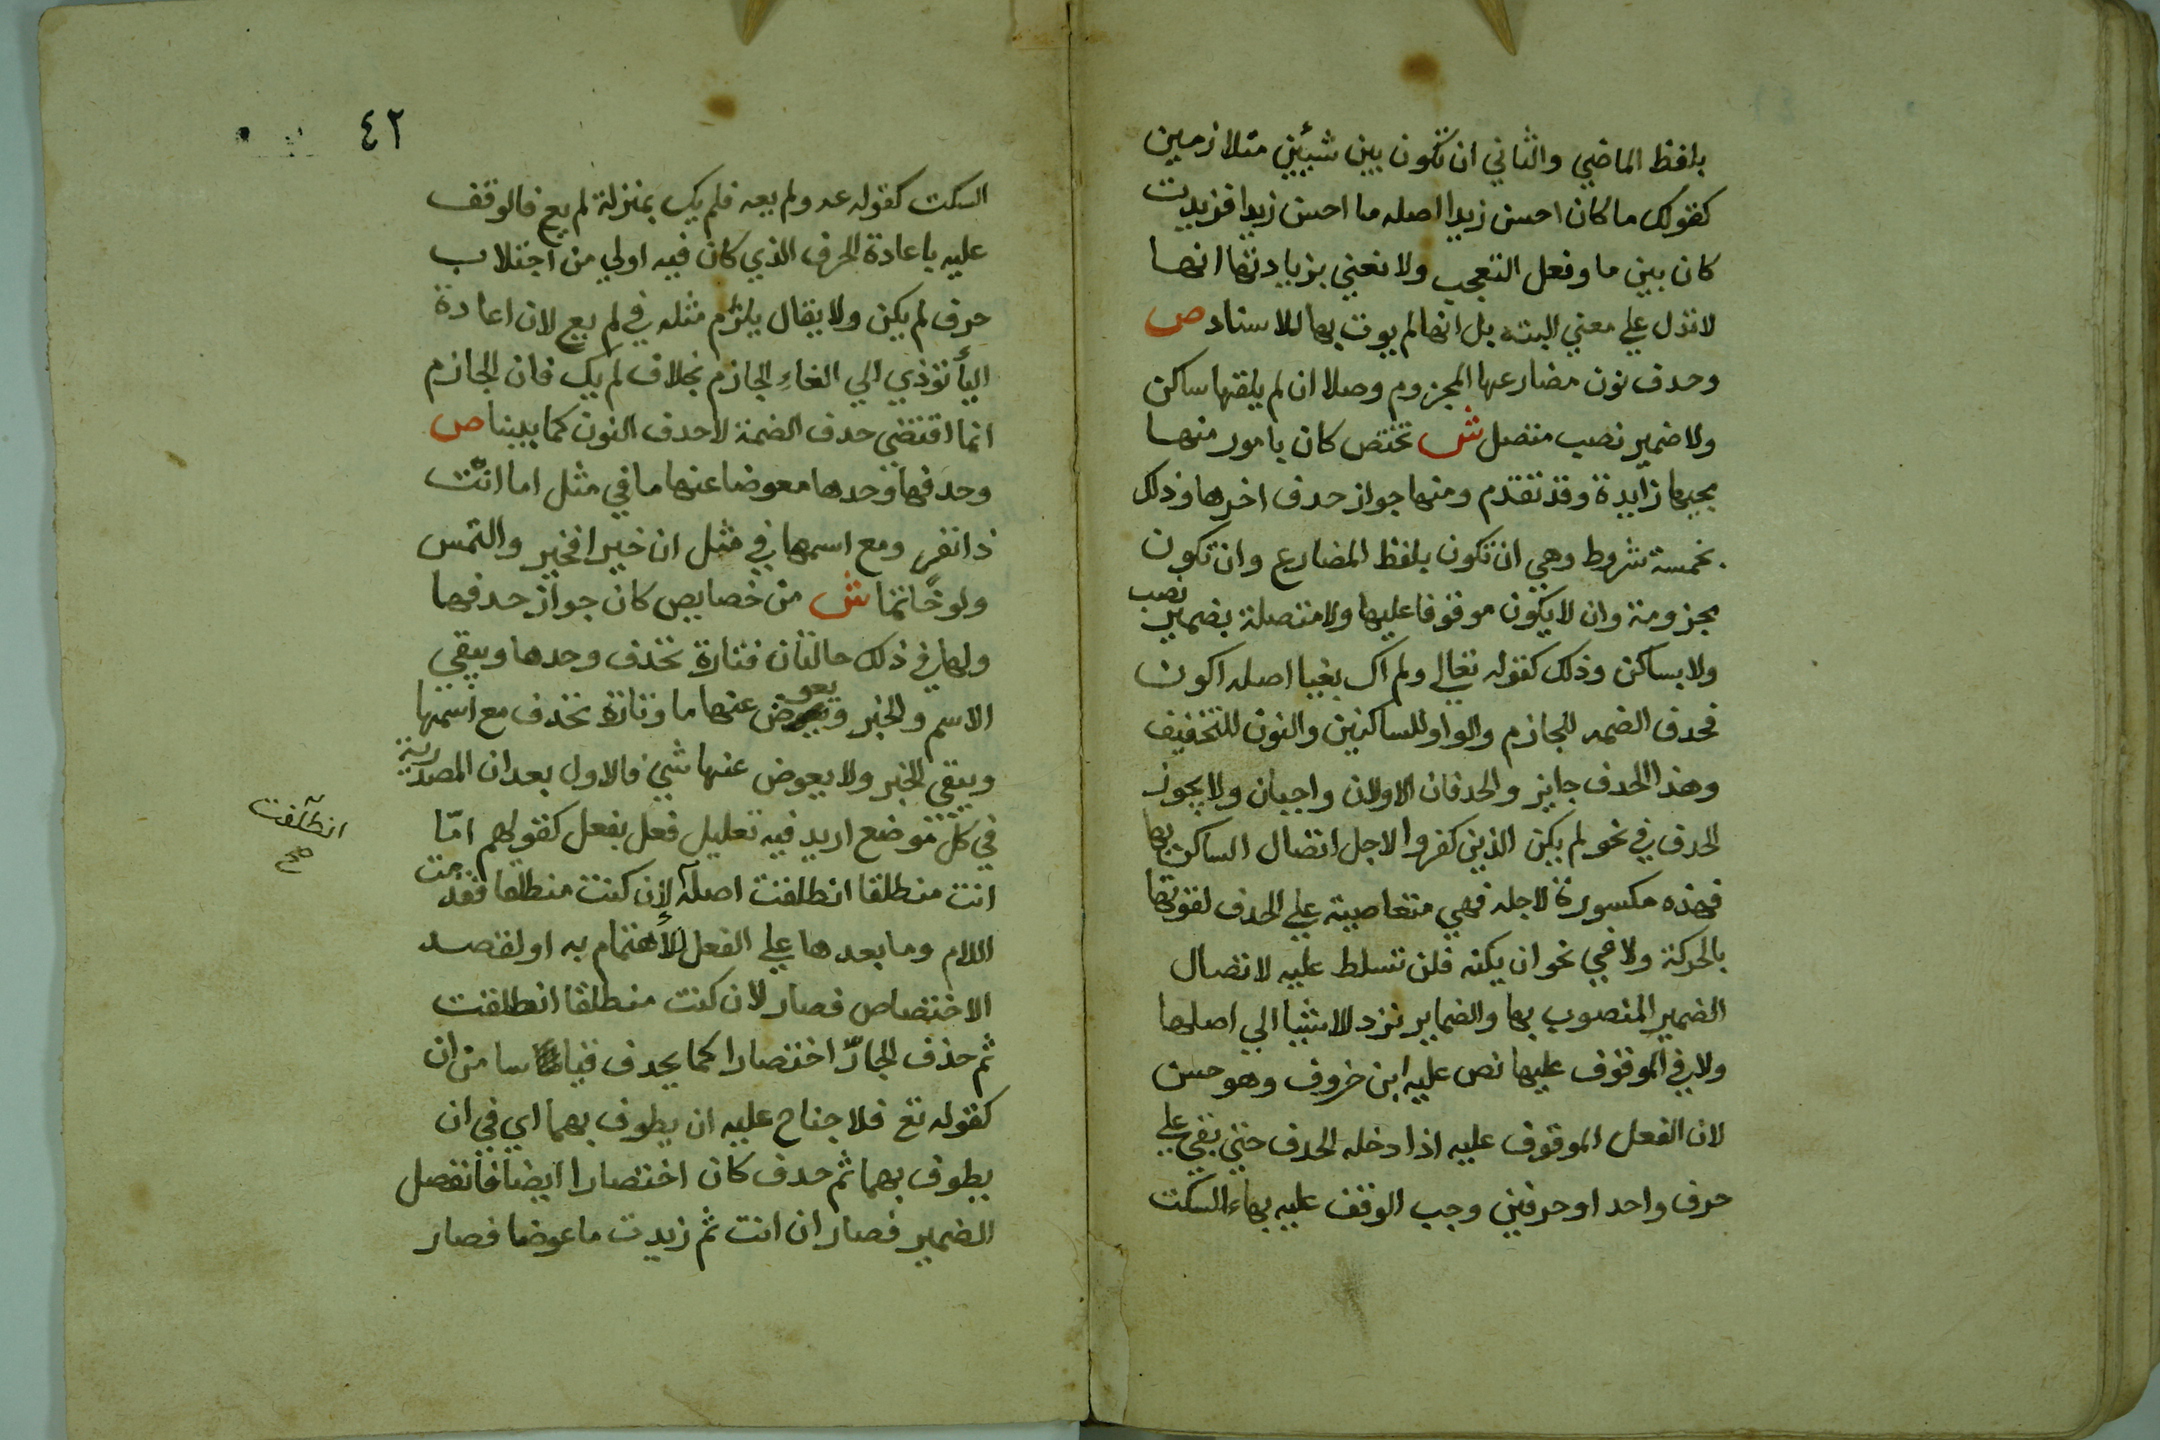 بلفظ الماضي والثاني ان تكون بين شيئين متلازمين
كقولك ما كان احسن زيدا اصله ما احسن زيدا فزيدت
كان بين ما وفعل التعجب ولا نعني بزيادتها انها
لا تدل علي معني البتة بل انها لم يوت بها للاسناد ص
وحدف نون مضارعها المجزوم وصلا ان لم يلقها ساكن
ولا ضمير نصب متصل ش تختص كان بامور منها
مجيها زايدة وقد تقدم ومنها جواز حدف اخرها وذلك
بخمسة شروط وهي ان تكون بلفظ المضارع وان تكون
مجزومة وان لا يكون موقوفا عليها ولا متصلة بضمير نصب
ولا بساكن وذلك كقوله تعالي ولم اك بغيا اصله اكون
فحدف الضمه للجازم والواو للساكنين والنون للتخفيف
وهذا الحدف جايز والحدفان الاولان واجبان ولا يجوز
الحدف في نحو لم يكن الذين كفروا لاجل اتصال الساكن بها
فهذه مكسورة لاجله فهي متعاصية علي الحدف لقوتها
بالحركة ولا في نحو ان يكنه فلن تسلط عليه لاتصال
الضمير المنصوب بها والضماير ترد الاشيا الي اصلها
ولا في الموقوف عليها نص عليه ابن خروف وهو حسن
لان الفعل الموقوف عليه اذا دخله الحدف حتي بقي علي
حرف واحد او حرفين وجب الوقف عليه بهاء السكت
٤٢
السكت كقوله عه ولم يعه فلم يك بمنزلة لم يع فالوقف
عليه باعادة الحرف الذي كان فيه اولي من اجتلاب
حرف لم يكن ولا يقال يلزم مثله في لم يع لان اعادة
اليأ تؤذي الي الغاء الجازم بخلاف لم يك فان الجازم
انما اقتضي حدف الضمة لا حدف النون كما بينا ص
وحدفها وحدها معوضا عنها ما في مثل اما انت
ذا نفر ومع اسمها في مثل ان خيرا فخير والتمس
ولو خاتما ش من خصايص كان جواز حدفها
ولها في ذلك حالتان فتارة تحذف وحدها ويبقي
الاسم والخبر ويعوض عنها ما وتارة تحذف مع اسمها
ويبقي الخبر ولا يعوض عنها شي فالاول بعد ان المصدرية
في كل موضع اريد فيه تعليل فعل بفعل كقولهم امّا
انت منطلقا انطلقت اصله لان كنت منطلقا فقدمت
انطلقت
صح
اللام وما بعدها علي الفعل للأهتمام به او لقصد
الاختصاص فصار لان كنت منطلقا انطلقت
ثم حذف الجارّ اختصارا كما يحدف قياسا من ان
كقوله تع فلا جناح عليه ان يطوف بهما اي في ان
يطوف بهما ثم حدف كان اختصارا ايضا فانفصل
الضمير فصار ان انت ثم زيدت ما عوضا فصار